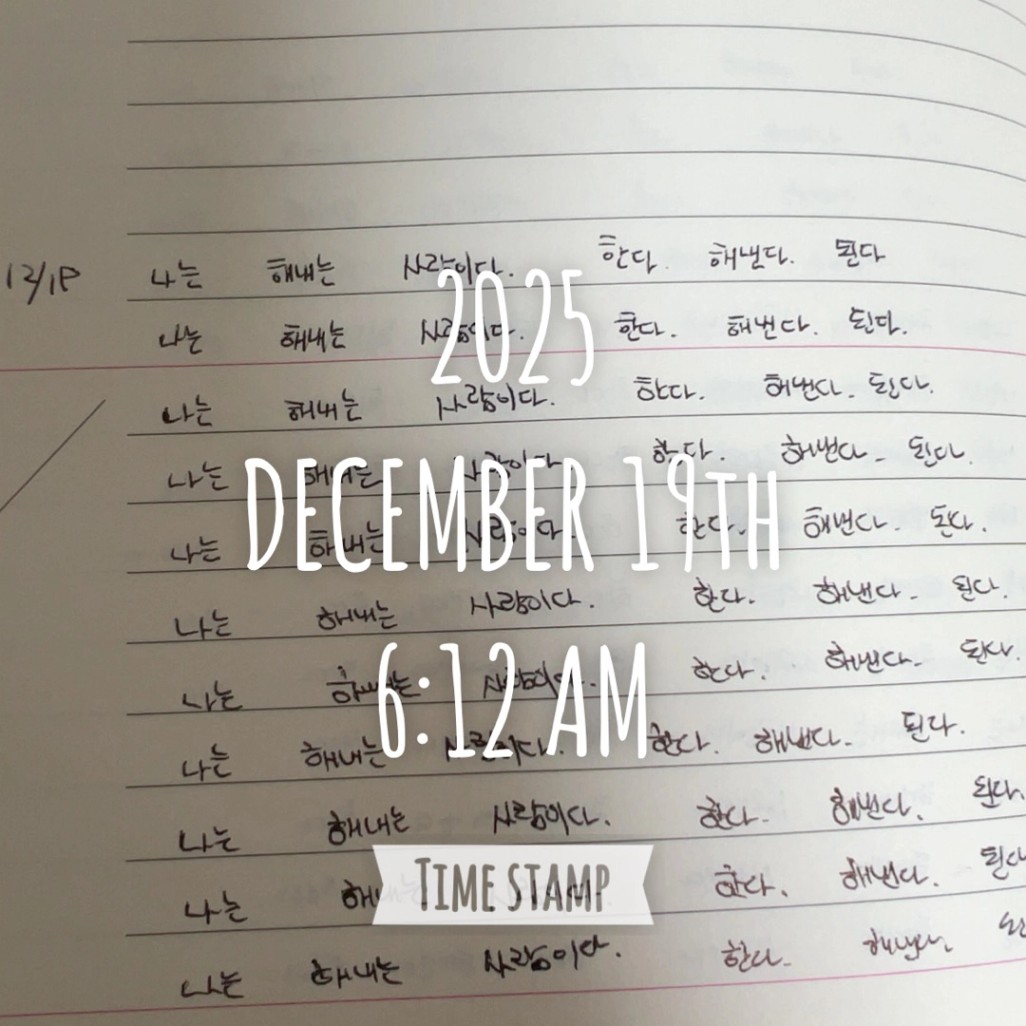 나는 해내는 사람이다. 한다. 해낸다. 된다
나는 해내는 사람이다. 한다. 해낸다. 된다.
2025
나는 해내는 사람이다. 한다. 해낸다. 된다.
나는 해내는 사람이다. 한다. 해낸다. 된다.
DECEMBER 19TH
나는 해내는 사람이다. 한다. 해낸다. 된다.
나는 해내는 사람이다. 한다. 해낸다. 된다.
6:12 AM
나는 해내는 사람이다. 한다. 해낸다. 된다.
나는 해내는 사람이다. 한다. 해낸다. 된다.
나는 해내는 사람이다. 한다. 해낸다. 된다.
TIME STAMP
나는 한다. 해낸다. 된다
나는 해내는 사람이다. 한다. 해낸다.